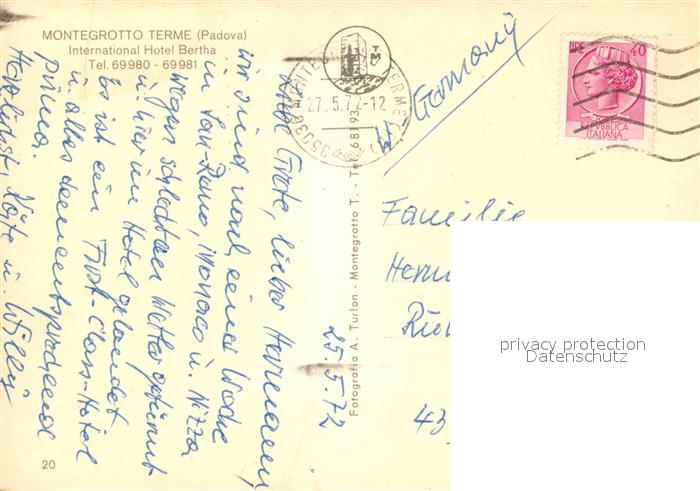 MONTEGROTTO TERME (Padova)
International Hotel Bertha
Tel. 69980 - 69981
Liebe Grete, lieber Hermann,
wir sind nach einer Woche
in San-Remo, Monaco u. Nizza
wegen schlechten Wetter
u. hier im Hotel gelandet
Es ist ein First-Class-Hotel
u. alles dementsprechend
prima.
Herzlichst Käte u. Willi
25.5.72
20
Fotografia A. Turlon - Montegrotto T. - Tel. 68193
35036 MONTEGROTTO TERME
27.5.72-12
W-Germany
LIRE 40
REPUBBLICA
ITALIANA
Familie
Herm
43
privacy protection
Datenschutz